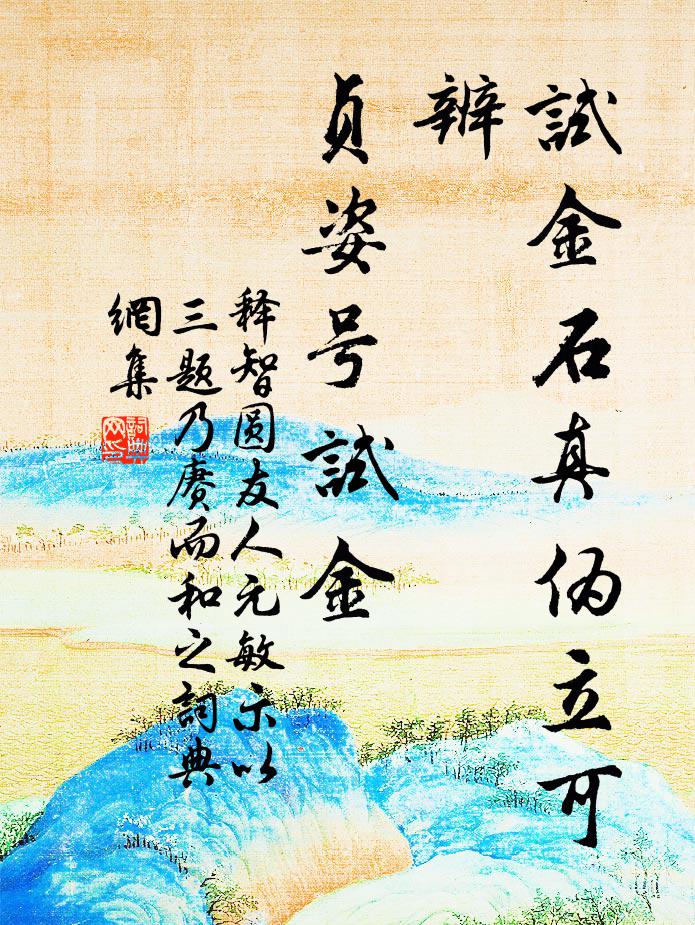 試金石真伪立可
辨
貞姿号試金
释智圆友人元敏示以
三题乃赓而和之詞典
網集
詞典
网印